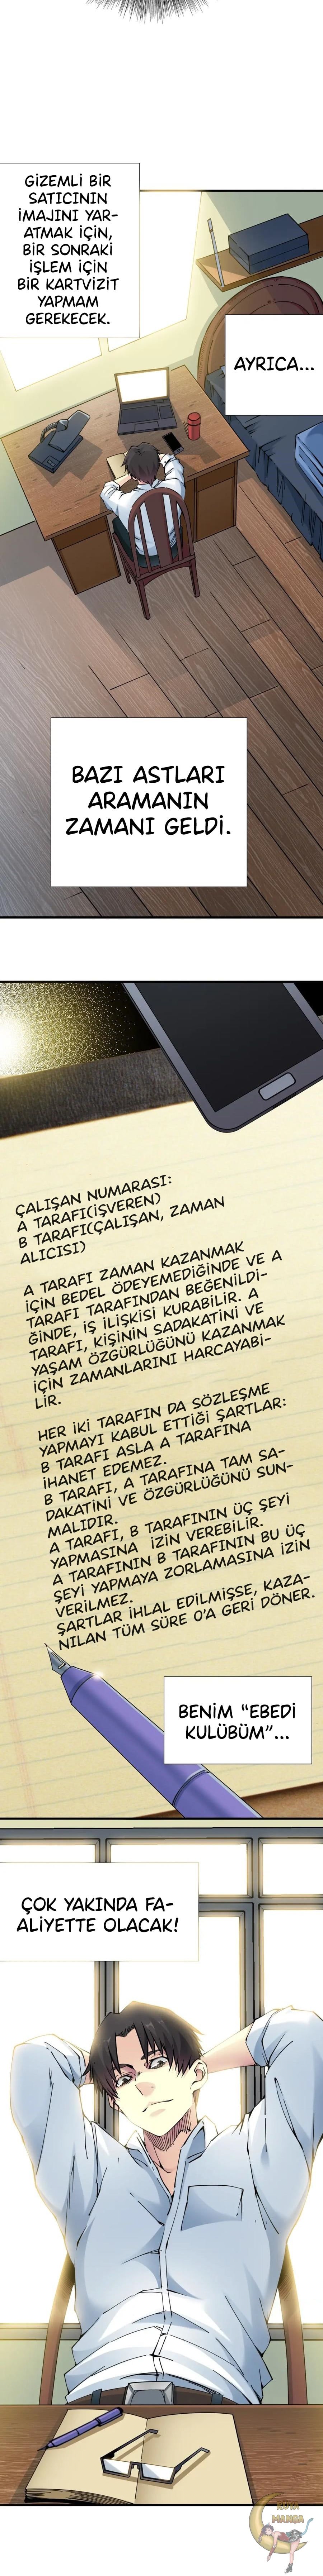 GİZEMLİ BİR
SATICININ
İMAJINI YAR-
ATMAK İÇİN,
BİR SONRAKİ
İŞLEM İÇİN
BİR KARTVİZİT
YAPMAM
GEREKECEK.
AYRICA...
BAZI ASTLARI
ARAMANIN
ZAMANI GELDİ.
ÇALIŞAN NUMARASI:
A TARAFI(İŞVEREN)
B TARAFI(ÇALIŞAN, ZAMAN
ALICISI)
A TARAFI ZAMAN KAZANMAK
İÇİN BEDEL ÖDEYEMEDİĞİNDE VE A
TARAFI TARAFINDAN BEĞENİLDİ-
ĞİNDE, İŞ İLİŞKİSİ KURABİLİR. A
TARAFI, KİŞİNİN SADAKATİNİ VE
YAŞAM ÖZGÜRLÜĞÜNÜ KAZANMAK
İÇİN ZAMANLARINI HARCAYABİ-
LİR.
HER İKİ TARAFIN DA SÖZLEŞME
YAPMAYI KABUL ETTİĞİ ŞARTLAR:
B TARAFI ASLA A TARAFINA
İHANET EDEMEZ.
B TARAFI, A TARAFINA TAM SA-
DAKATİNİ VE ÖZGÜRLÜĞÜNÜ SUN-
MALIDIR.
A TARAFI, B TARAFININ ÜÇ ŞEYİ
YAPMASINA İZİN VEREBİLİR.
A TARAFININ B TARAFININ BU ÜÇ
ŞEYİ YAPMAYA ZORLAMASINA İZİN
VERİLMEZ.
ŞARTLAR İHLAL EDİLMİŞSE, KAZA-
NILAN TÜM SÜRE 0'A GERİ DÖNER.
BENİM "EBEDİ
KULÜBÜM"...
ÇOK YAKINDA FA-
ALİYETTE OLACAK!
MANGA